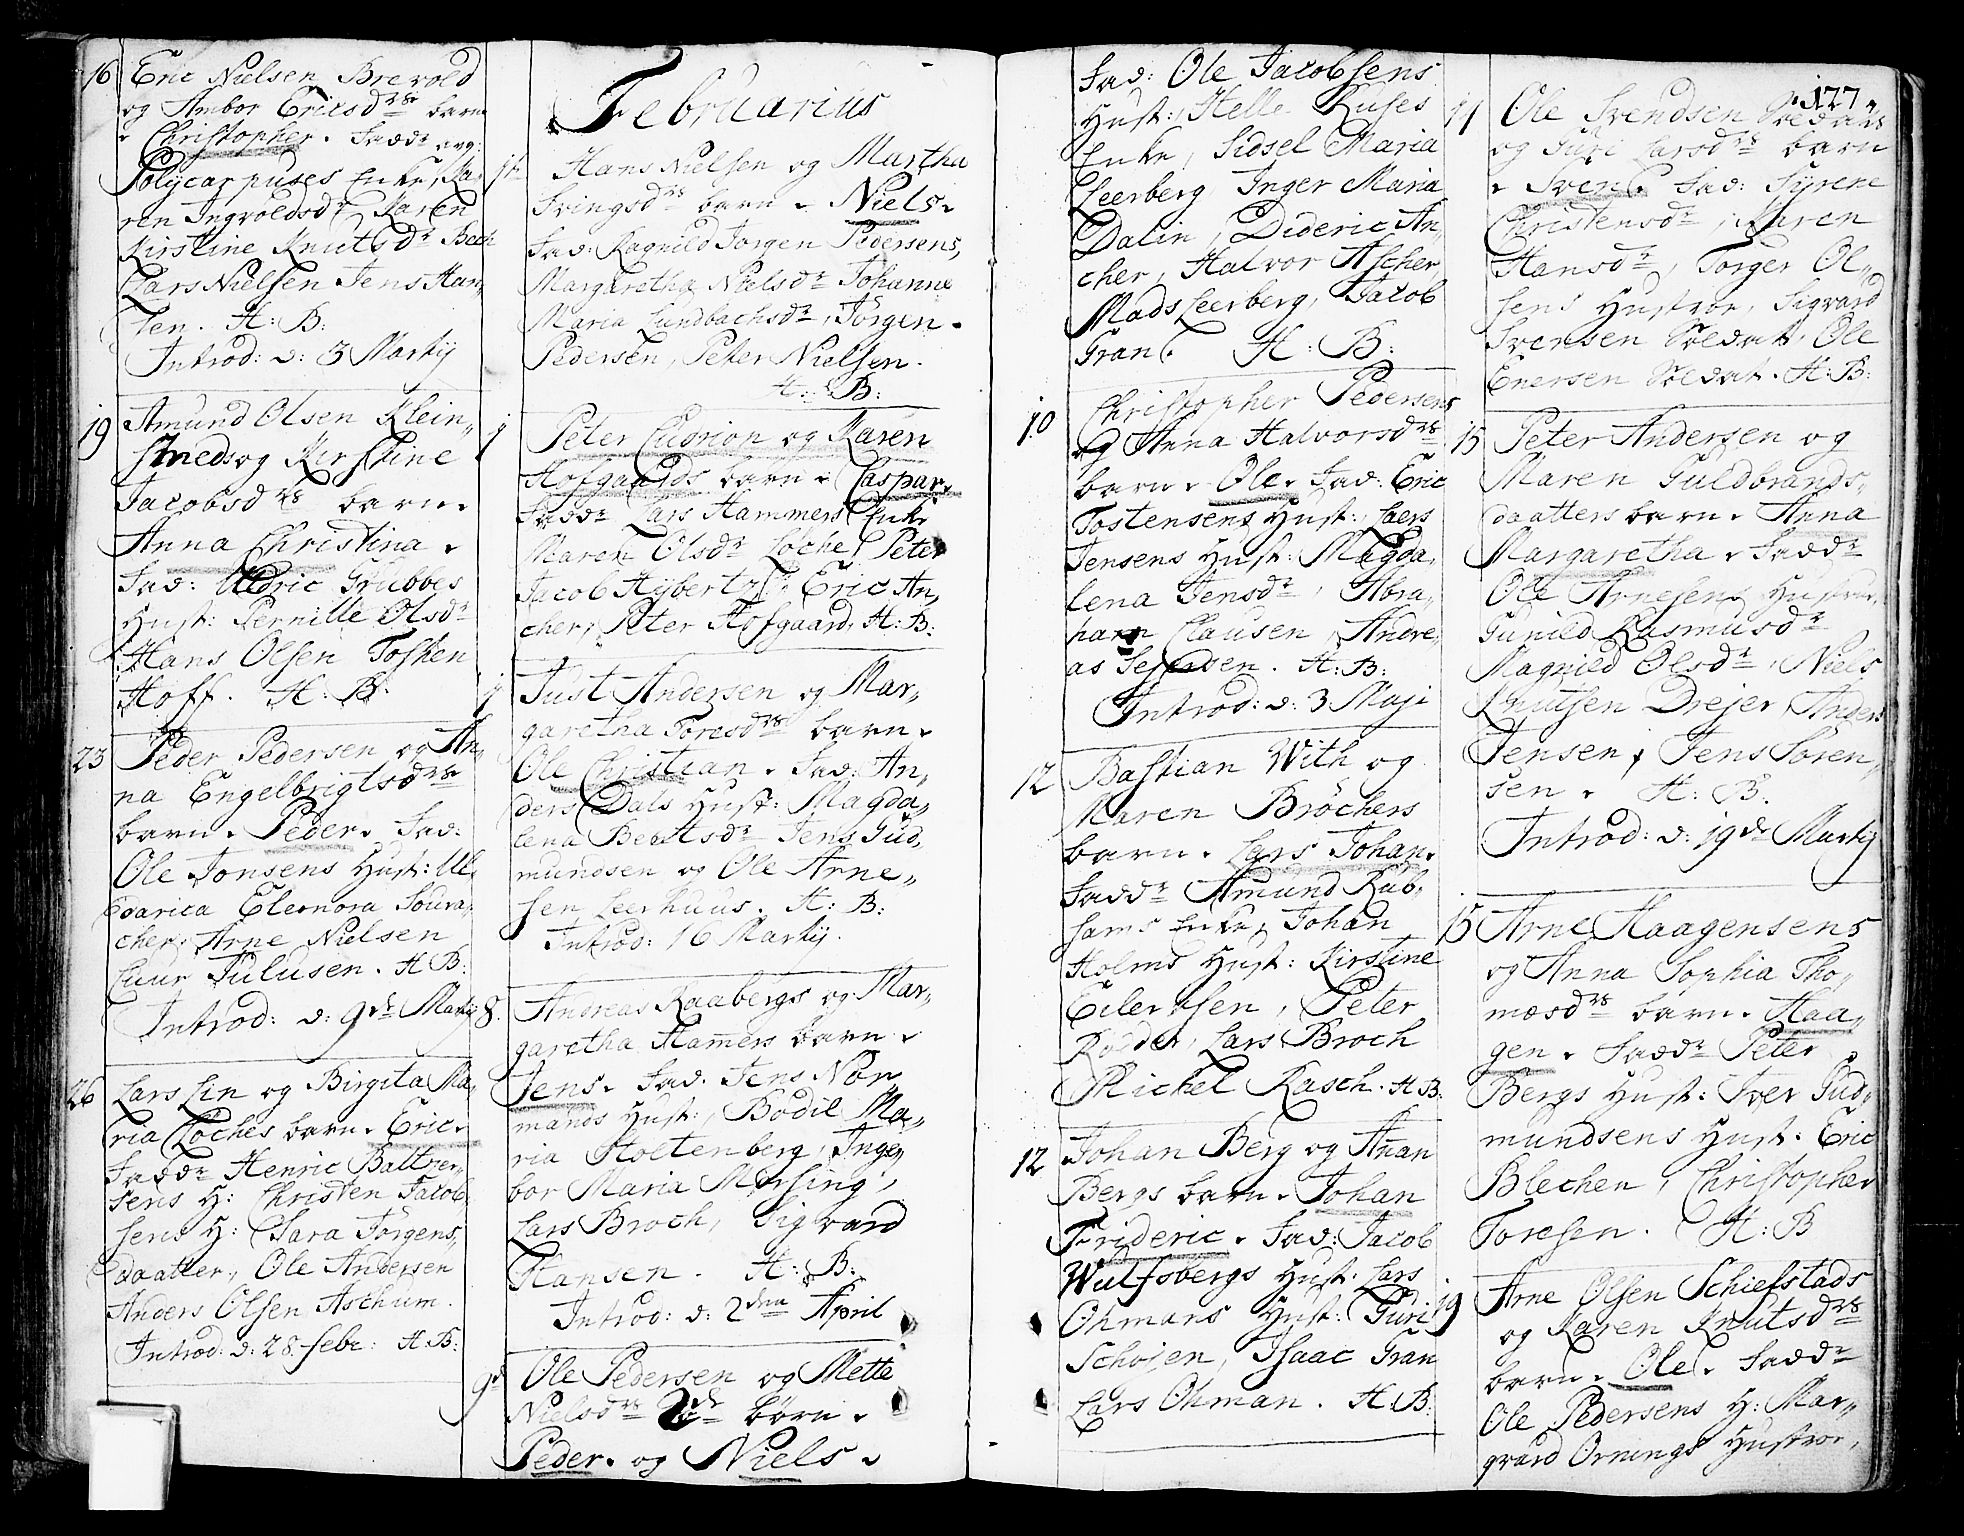 16 Eric Nielsen Brevold
og Ambor Ericsdrs barn
Christopher. Fadd: avg:
Polycarpuses Enke, Ka-
ren Ingvoldsdr Karen
Kirstine Knutsdr Bech
Lars Nielsen Jens Han,,
sen. H: B:
Introd: d: 3 Martij
19 Amund Olsen Klein,,
smeds og Kirstine
Jacobsdrs barn.
Anna Christina.
Fad: Uldric Grubbes
Hust: Pernille Olsdr
Hans Olsen Tosken
Hoff. H: B:
23 Peder Pedersen og An,,
na Engelbrigtsdrs
barn. Peder. Fad:
Ole Jonsens Hust: Ul,,
darica Eleonora
cher, Arne Nielsen
Tulusen. H B:
Introd: d: 9de Martij
26 Lars Lin og Birgita Ma,,
ria Loches barn. Eric.
Faddr Henric Baltzer,,
sens H: Christen Jacob,,
sens H: Sara Jörgens,,
daatter, Ole Andersen
Anders Olsen Aschum.
Introd: d: 28. febr: H: B:
Februarius
1te Hans Nielsen og Martha
Svingsdrs barn. Niels.
Fad: Ragnild Jörgen Pedersens,
Margaretha Nielsdr Johanne
Maria Lundbachsdr, Jörgen
Pedersen, Peter Nielsen.
H: B:
1 Peter Cudrion og Karen
Hofgaards barn. Caspar.
Faddr Lars Hammers Enke
Maren Olsdr Loche, Peter
Jacob Hybertz, Eric An,,
cher, Peter Hofgaard, H: B:
1 Just Andersen og Mar,,
garetha Toresdrs barn.
Ole Christian. Fad: An,,
ders Dals Hust: Magda,,
lena Bentsdr Jens Gud,,
mundsen og Ole Arne,,
sen Leerhuus. H: B:
Introd: 16 Martij.
8. Andreas Raabergs og Mar,,
garetha Hamers barn.
Jens. Fad. Jens Nor
mands Hust:, Bodil Ma,,
ria Holtenberg, Inge,,
bor Maria Mersing,
Lars Broch, Sigvard
Hansen. H: B:
Introd: d: 2den April
9de Ole Pedersen og Mette
Nielsdrs 2de börn.
Peder. og Niels.
Fad: Ole Jacobsens
Hust: Helle Kuses
Enke, Sidsel Maria
Leerberg Inger Maria
Dalin, Dideric An,,
cher, Halvor Ascher,
Mads Leerberg, Jacob
Gran. H: B:
10 Christopher Pedersens
og Anna Halvorsdrs
barn. Ole. Fad: Eric
Tostensens Hust:, Laers
Jensens Hust: Magda,,
lena Jensdr, Abra,,
ham Clausen, Andre,,
as Sejersen. H: B:
Introd: d: 3 Maji
12 Bastian With og
Maren Bröchers
barn. Lars Johan.
Faddr Amund Rab,,
hams Enke, Johan
Holms Hust: Kirstine
Eilertsen, Peter
Rödder, Lars Broch
Michel Rasch. H B:
12 Johan Berg og Anan
Bergs barn. Johan
Frideric. Fad: Jacob
Wulfsbergs Hust: Lars
Ohmans Hust: Guri
Schojen, Isaac Gran
Lars Ohman. H: B:
127.
11 Ole Svendsen Soldats
og Guri Larsdrs barn
Svend. Fad: Syrene
Christensdr, Karen
Hansdr, Torger Ol,,
sens Hustroe, Sigvard
Svensen Soldat, Ole
Enersen Soldat. H: B:
15 Peter Andersen og
Maren Guldbrands,,
daatters barn. Anna
Margaretha. Faddr
Ole Arnesens Hustru,
Gunild Rasmusdr
Magnild Olsdr, Niels
Knutsen Drejer, Anders
Jensen, Jens Sören,,
sen. H: B.
Introd: d: 19de Martij
15 Arne Haagensens
og Anna Sophia Tho,,
mæsdrs barn. Haa,,
gen. Faddr Peter
Bergs Hust: Iver Gud,,
mundsens Hust: Eric
Blechen, Christopher
Toresen. H: B
19 Arne Olsen Schiefstads
og Karen Knutsdrs
barn. Ole. Faddr
Ole Pedersens H: Mar,,
grard Ornings Hustroe,